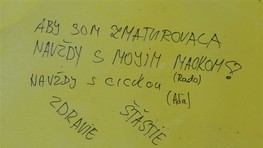 ABY SOM ZMATUROVALA
NAVŽDY S MOJIM MACKOM?
(Rado)
NAVŽDY S CICKOU
(Aďa)
ZDRAVIE
ŠŤASTIE